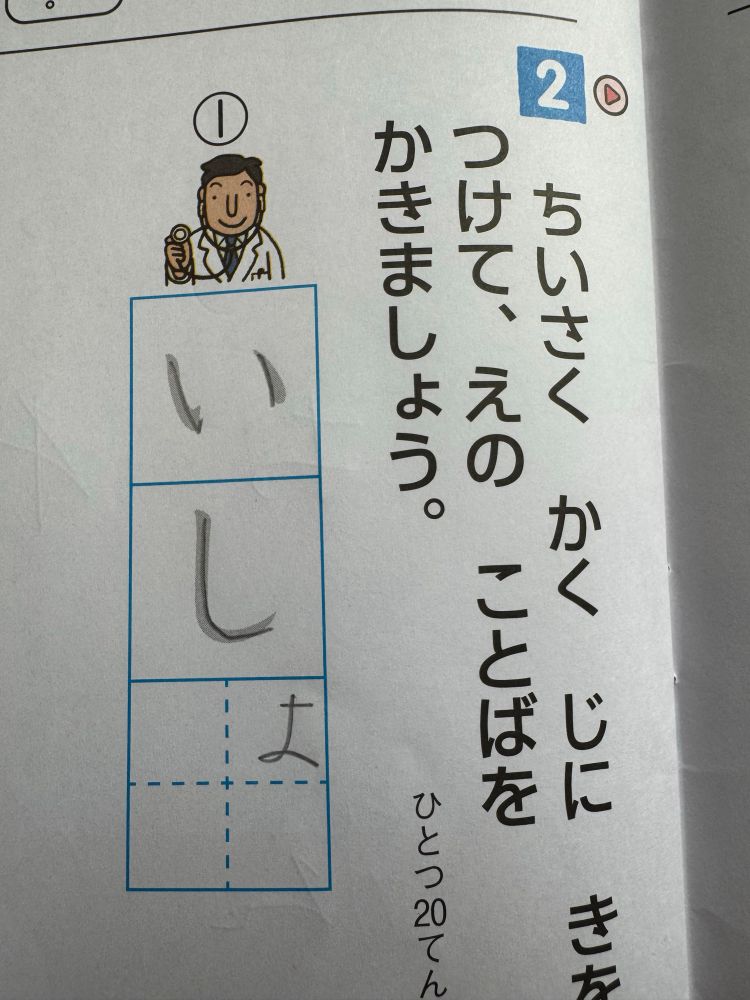 2
ちいさく かく じに きを
つけて、えの ことばを
かきましょう。
ひとつ20てん
①
いしょ